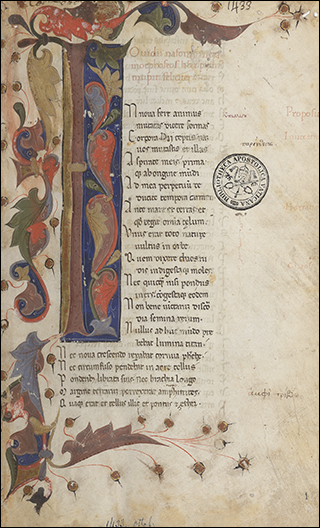 1433
N noua fert animus
mutatas dicere formas
Corpora Dii ceptis nam
uos mutastis et illas
Aspirate meis prima
q; ab origine mundi
Ad mea perpetuũ de
ducite tempora carmẽ
Ante mare et terras et
qđ tegit omnia celum
Vnus erat toto nature
uultus in orbe
Quem dixere chaos ru
dis indigestaq; moles
Nec quicq̃ nisi pondus
iners cõgestaq; eodem
Non bene iunctarũ disco
dia semina rerum
Nullus adhuc mũdo pre
bebat lumina titan
Nec noua crescendo reparabat cornua phebe
Nec circumfuso pendebat in aere tellus
Ponderib; librata suis. Nec brachia longo
Margine terrarum porrexerat amphitrites
Quaq; erat et tellus illic et pontus et ether
BIBLIOTECA APOSTOLICA VATICANA
Proposi
1433 ottob.